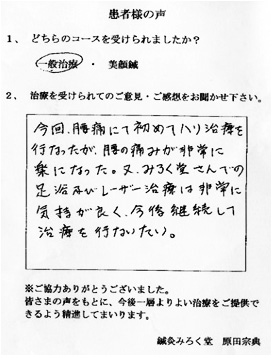 患者様の声
1、 どちらのコースを受けられましたか？
一般治療 ・ 美顔鍼
2、 治療を受けられてのご意見・ご感想をお聞かせ下さい。
今回、腰痛にて初めてハリ治療を
行なったが、腰の痛みが非常に
楽になった。又、みろく堂さんでの
足浴及びレーザー治療は非常に
気持が良く、今後継続して
治療を行ないたい。
※ご協力ありがとうございました。
皆さまの声をもとに、今後一層よりよい治療をご提供で
きるよう精進してまいります。
鍼灸みろく堂 原田宗典